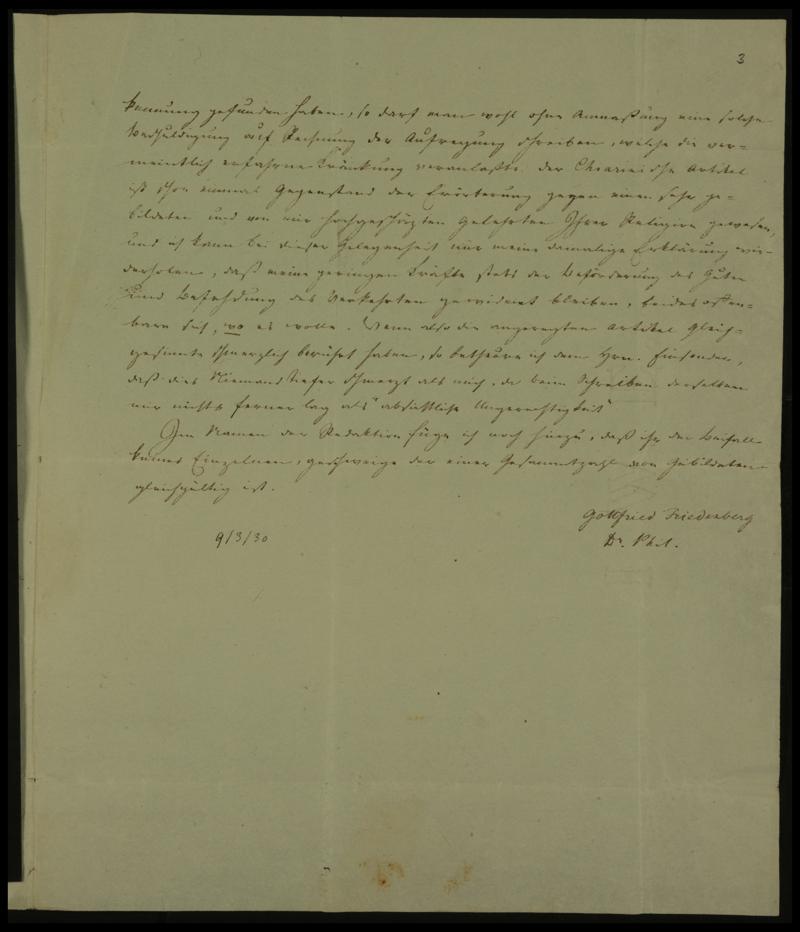 3
kennung gefunden haben, so darf man wohl ohne Anmaßung eine solche
Beschuldigung auf Rechnung der Aufregung schreiben, welche die ver-
meintlich erfahrne Kränkung veranlaßte. Der Chiarinische Artikel
ist schon einmal Gegenstand der Erörterung gegen einen sehr ge-
bildeten und von mir hochgeschäzten Gelehrten Ihrer Religion gewesen,
und ich kann bei dieser Gelegenheit nur meine damalige Erklärung wie-
derholen, daß meine geringen Kräfte stets der Beförderung des Guten
und Befehdung des Verkehrten gewidmet bleiben, beides offen-
bare sich, wo es wolle. Wenn also die angeregten Artikel Gleich-
gesinnte schmerzlich berührt haben, so betheure ich dem Hrn. Einsender,
daß dies Niemand tiefer schmerzt als mich, da beim Schreiben derselben
mir nichts ferner lag als "absichtliche Ungerechtigkeit"
Im Namen der Redaktion füge ich noch hinzu, daß ihr der Beifall
keines Einzelnen, geschweige der einer Gesammtzahl von Gebildeten
gleichgültig ist.
Gottfried Friedenberg
9/3/30 Dr. Phil.